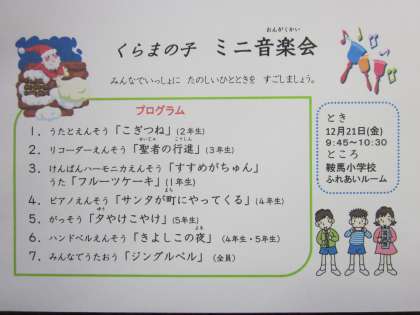 くらまの子 ミニ音楽会
おんがくかい
みんなでいっしょに たのしいひとときを すごしましょう。
プログラム
1. うたとえんそう「こぎつね」(2年生)
2. リコーダーえんそう「聖者の行進」(3年生)
3. けんばんハーモニカえんそう「すすめがちゅん」
うた「フルーツケーキ」(1年生)
4. ピアノえんそう「サンタが町にやってくる」(4年生)
まち
5. がっそう「夕やけこやけ」(5年生)
ゆう
6. ハンドベルえんそう「きよしこの夜」(4年生・5年生)
よる
7. みんなでうたおう「ジングルベル」(全員)
とき
12月21日(金)
9:45~10:30
ところ
鞍馬小学校
ふれあいルーム